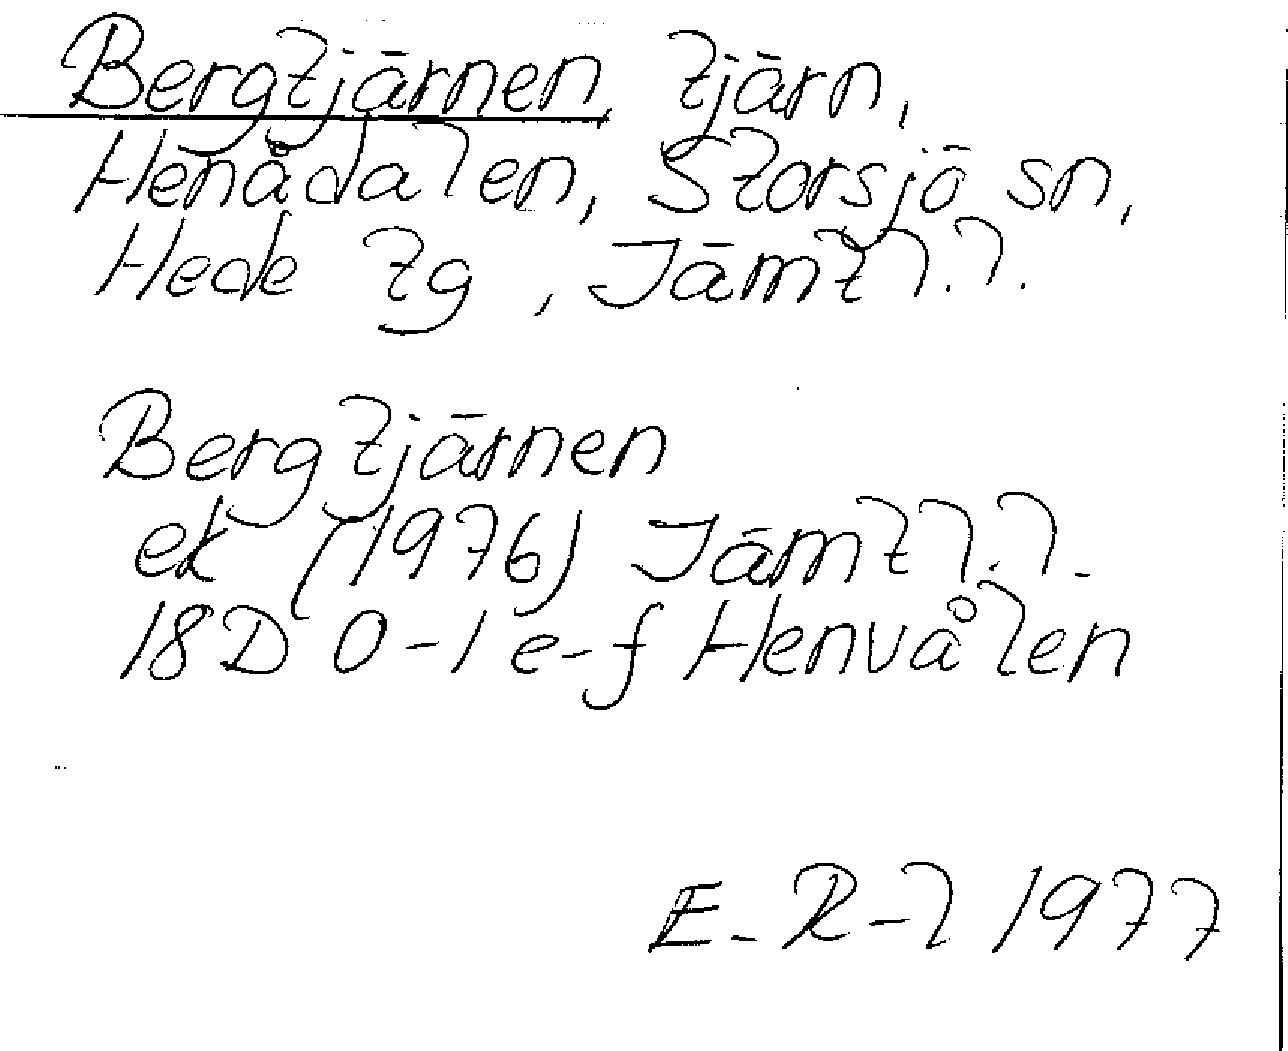 Bergtjärnen, tjärn,
Henådalen, Storsjö sn,
Hede tg, Jämtl.l.
Bergtjärnen
ek (1976) Jämtl.l.
18D 0-1 e-f Henvålen
E-R-l 1977